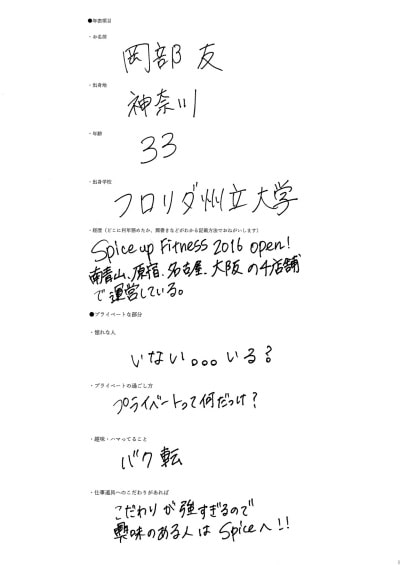 ●年表項目
・お名前
岡部 友
・出身地
神奈川
・年齢
33
・出身学校
フロリダ州立大学
・経歴（どこに何年務めたか、肩書きなどがわかる記載方法でおねがいします）
Spice up Fitness 2016 open!
南青山、原宿、名古屋、大阪の4店舗
で運営している。
●プライベートな部分
・憧れな人
いない。。。いる？
・プライベートの過ごし方
プライベートって何だっけ？
・趣味・ハマってること
バク転
・仕事道具へのこだわりがあれば
こだわりが強すぎるので
興味のある人はSpiceへ!!